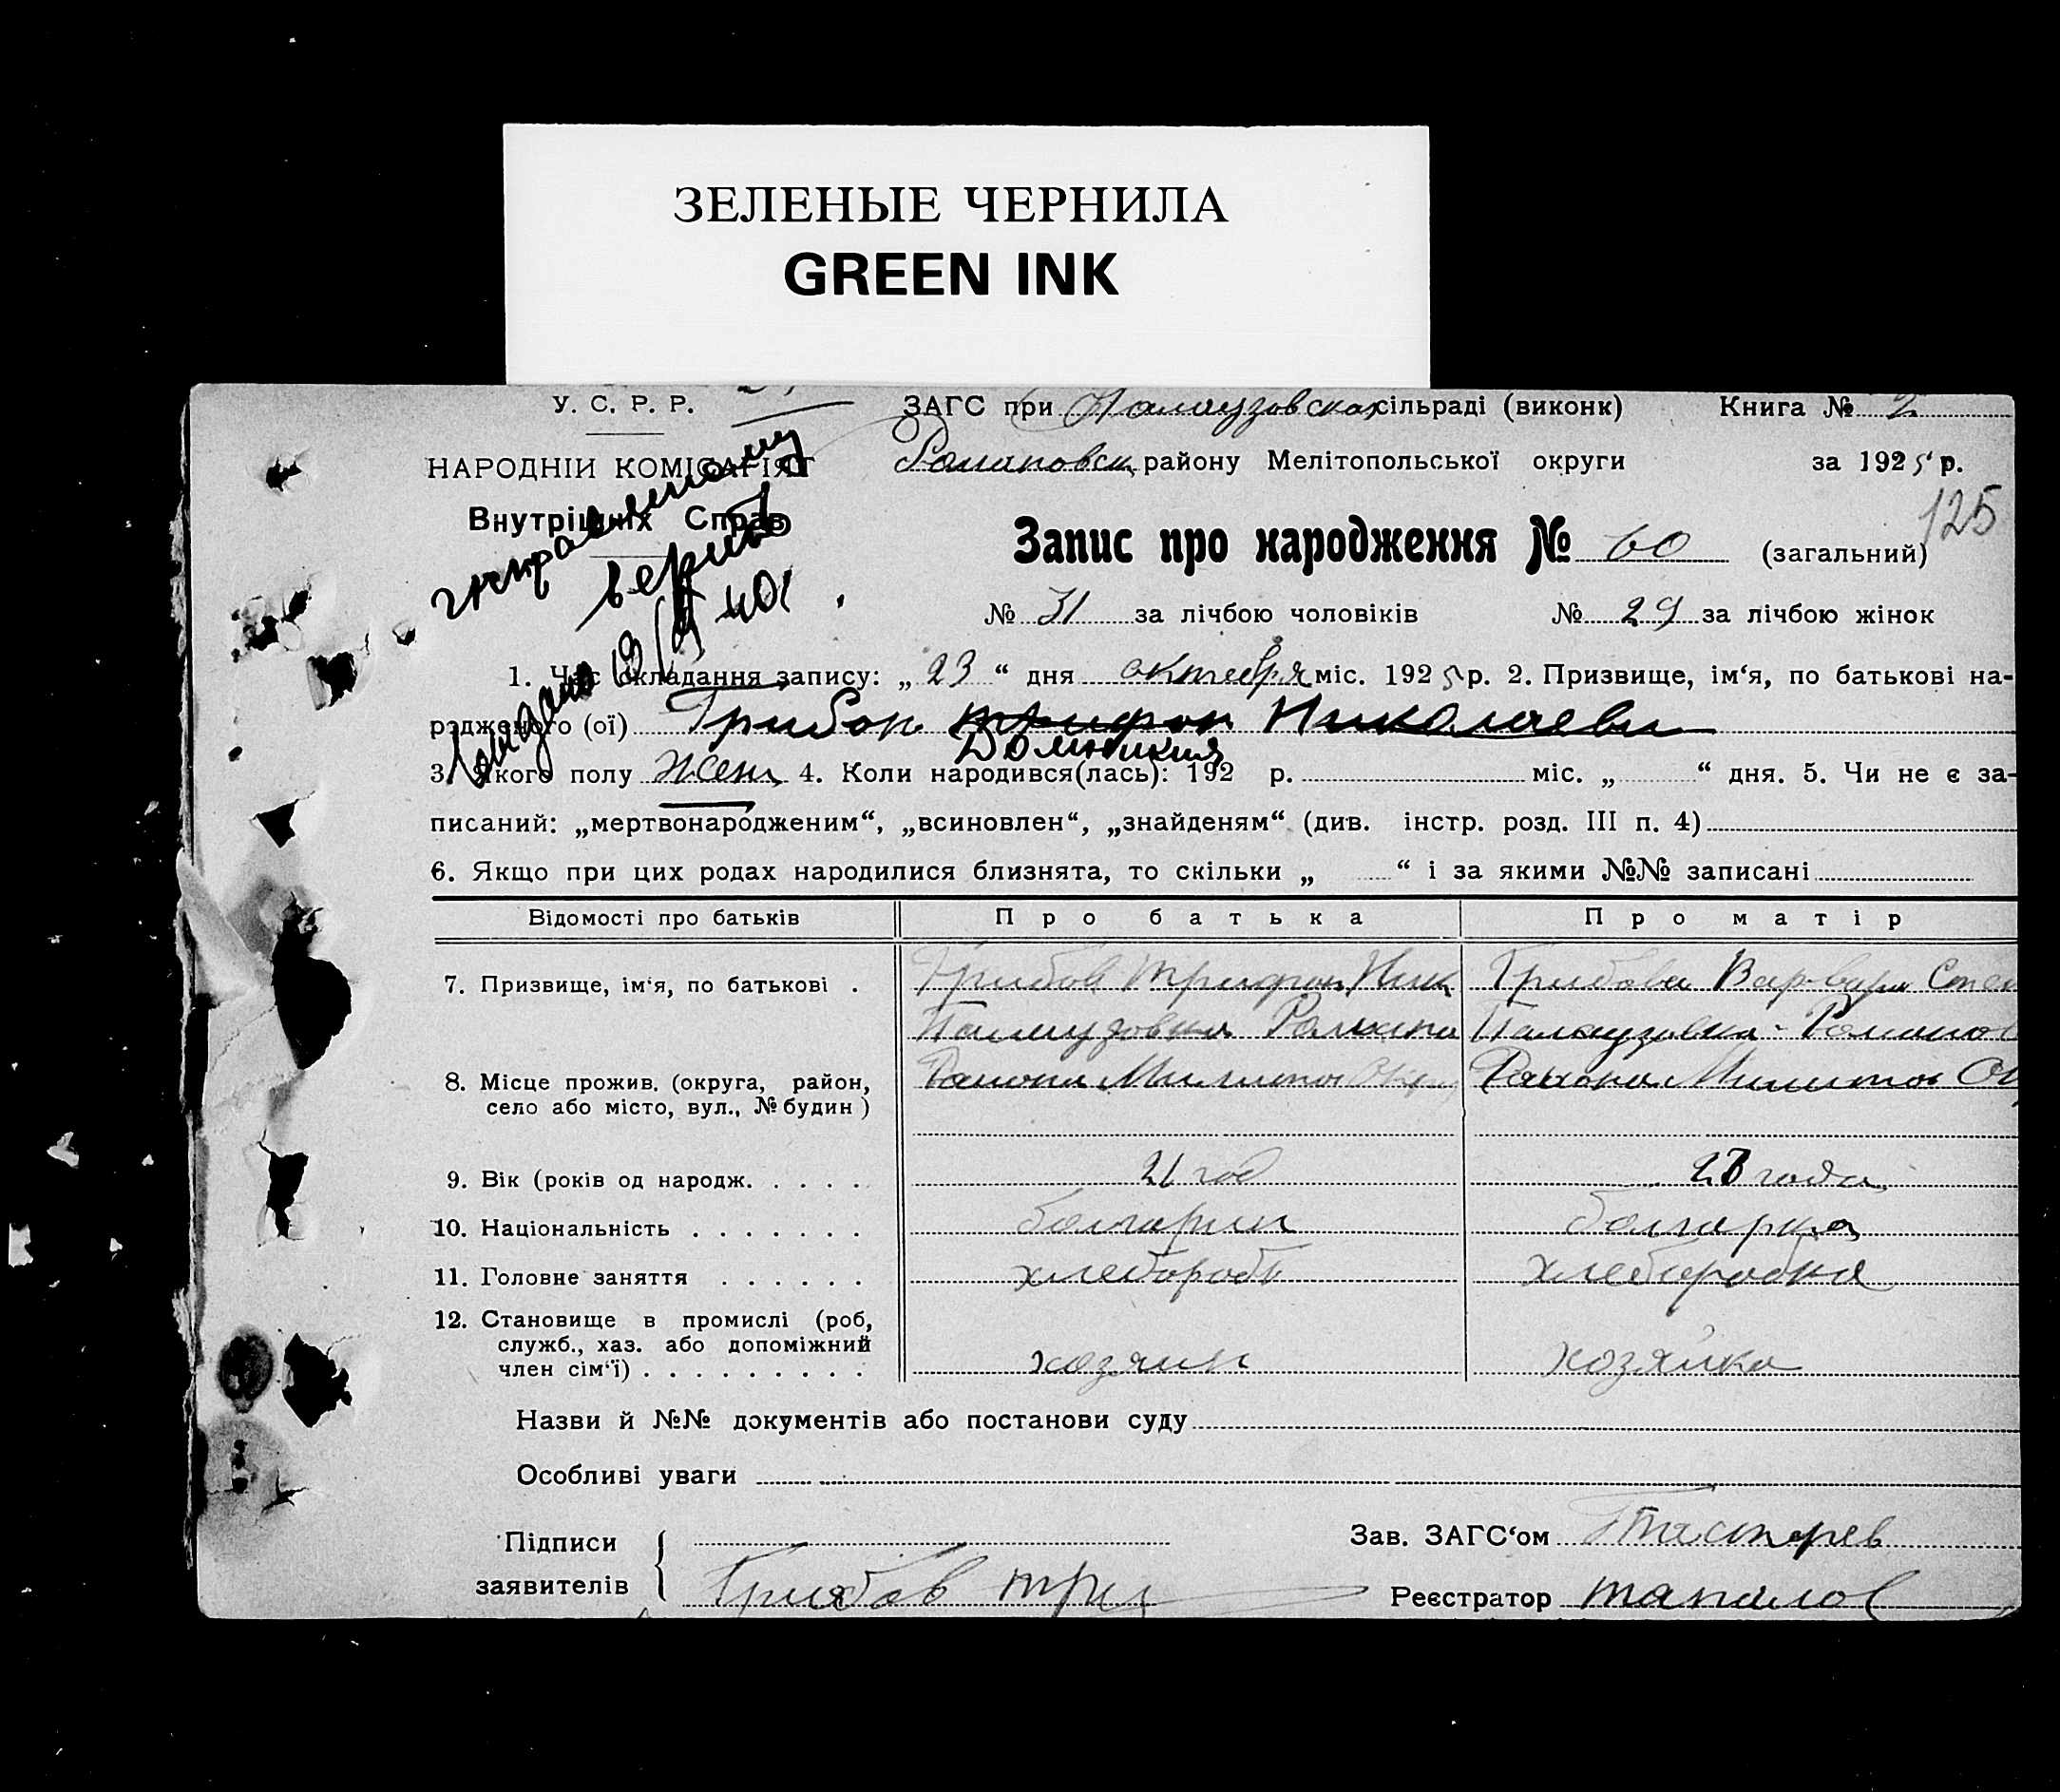 ЗЕЛЕНЫЕ ЧЕРНИЛА
GREEN INK
У. С. Р. Р.
ЗАГС при Палаузовской сільраді (виконк) Книга № 2
НАРОДНІЙ КОМІСАРІЯТ
Романовск району Мелітопольської округи за 1925 р.
125
Внутрішніх Справ
исправленному
верить
Выдано
Запис про народження № 60 (загальний)
№ 31 за лічбою чоловіків № 29 за лічбою жінок
1. Час складання запису: „ 23 “ дня октября міс. 1925 р. 2. Призвище, ім‘я, по батькові на-
родженого (ої) Грибов Трифон Николаеви
Домникия
3. Якого полу жен 4. Коли народився(лась): 192 р. міс. „ “ дня. 5. Чи не є за-
писаний: „мертвонародженим“, „всиновлен“, „знайденям“ (див. інстр. розд. III п. 4)
6. Якщо при цих родах народилися близнята, то скільки „ “ і за якими №№ записані
Відомості про батьків Про батька Про матір
7. Призвище, ім‘я, по батькові . Грибов Трифон Ник Грибова Варвара Степ
Палаузовка Романо Палаузовка Романов
8. Місце прожив. (округа, район, Района Мелитоп Окр Района Мелитоп Ок
село або місто, вул., № будин )
9. Вік (років од народж. . . . . 21 год 23 года
10. Національність . . . . . . . болгарин болгарка
11. Головне заняття . . . . . . хлебороб хлеборобка
12. Становище в промислі (роб,
служб., хаз. або допоміжний
член сім‘ї) . . . . . . . . . хозяин хозяйка
Назви й №№ документів або постанови суду
Особливі уваги
Підписи
заявителів Грибов Три
Зав. ЗАГС‘ом
Реєстратор Тапалов